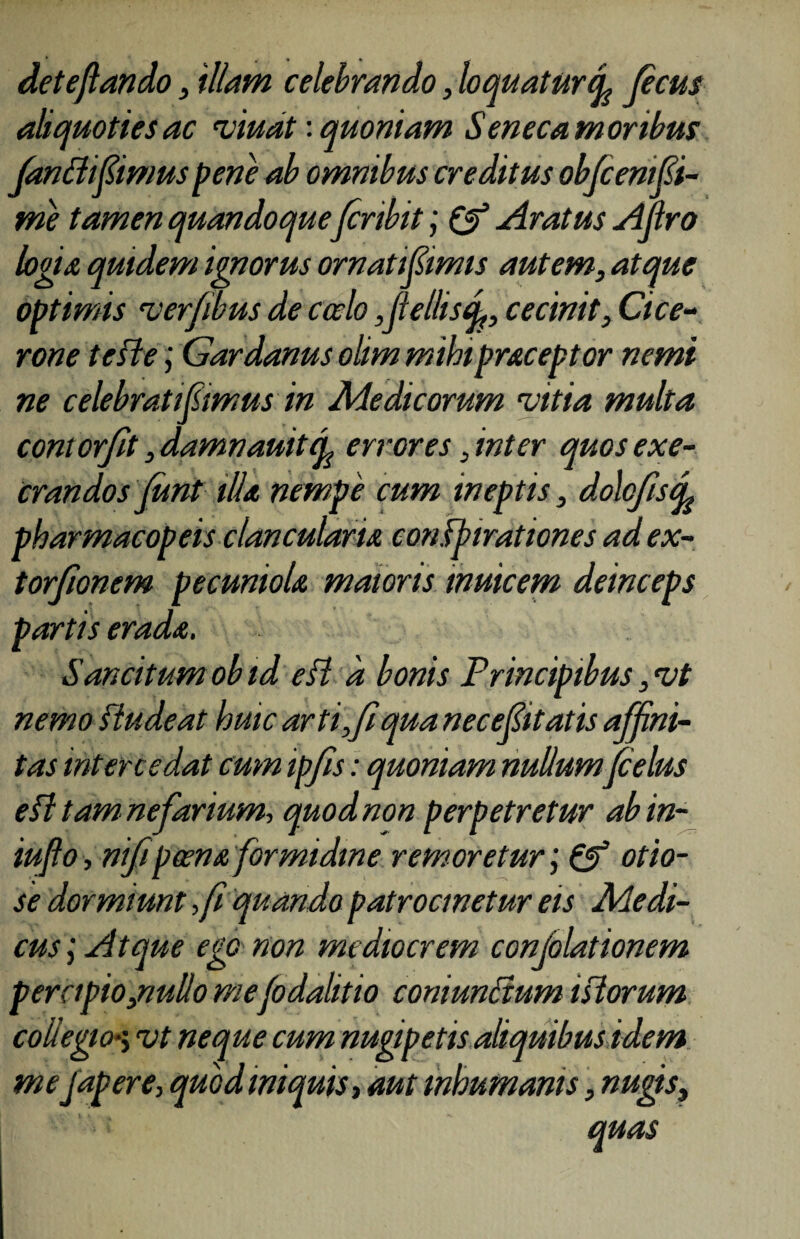 deteſtando, illam celebrando, loquaturq́; ſecus
aliquoties ac viuat: quoniam Seneca moribus
ſanctiſsimus penè ab omnibus creditus obſceniſsi-
mè tamen quandoque ſcribit; & Aratus Aſtro
logiæ quidem ignorus ornatiſsimis autem, atque
optimis verſibus de cœlo, ſtellisq́;, cecinit, Cice-
rone teste; Gardanus olim mihi præceptor nemi
ne celebratiſsimus in Medicorum vitia multa
contorſit, damnauitq́; errores, inter quos exe-
crandos ſunt illæ nempè cum ineptis, doloſisq́;
pharmacopeis clanculariæ conspirationes ad ex-
torſionem pecuniolæ maioris inuicem deinceps
partis eradæ.
Sancitum ob id est à bonis Principibus, vt
nemo studeat huic arti, ſi qua neceſsitatis affini-
tas intercedat cum ipſis: quoniam nullum ſcelus
est tam nefarium, quod non perpetretur ab in-
iuſto, niſi pœnæ formidine remoretur; & otio-
se dormiunt, ſi quando patrocinetur eis Medi-
cus; Atque ego non mediocrem conſolationem
percipio, nullo me ſodalitio coniunctum istorum
collegio; vt neque cum nugipetis aliquibus idem
me ſapere, quòd iniquis, aut inhumanis, nugis,
quas